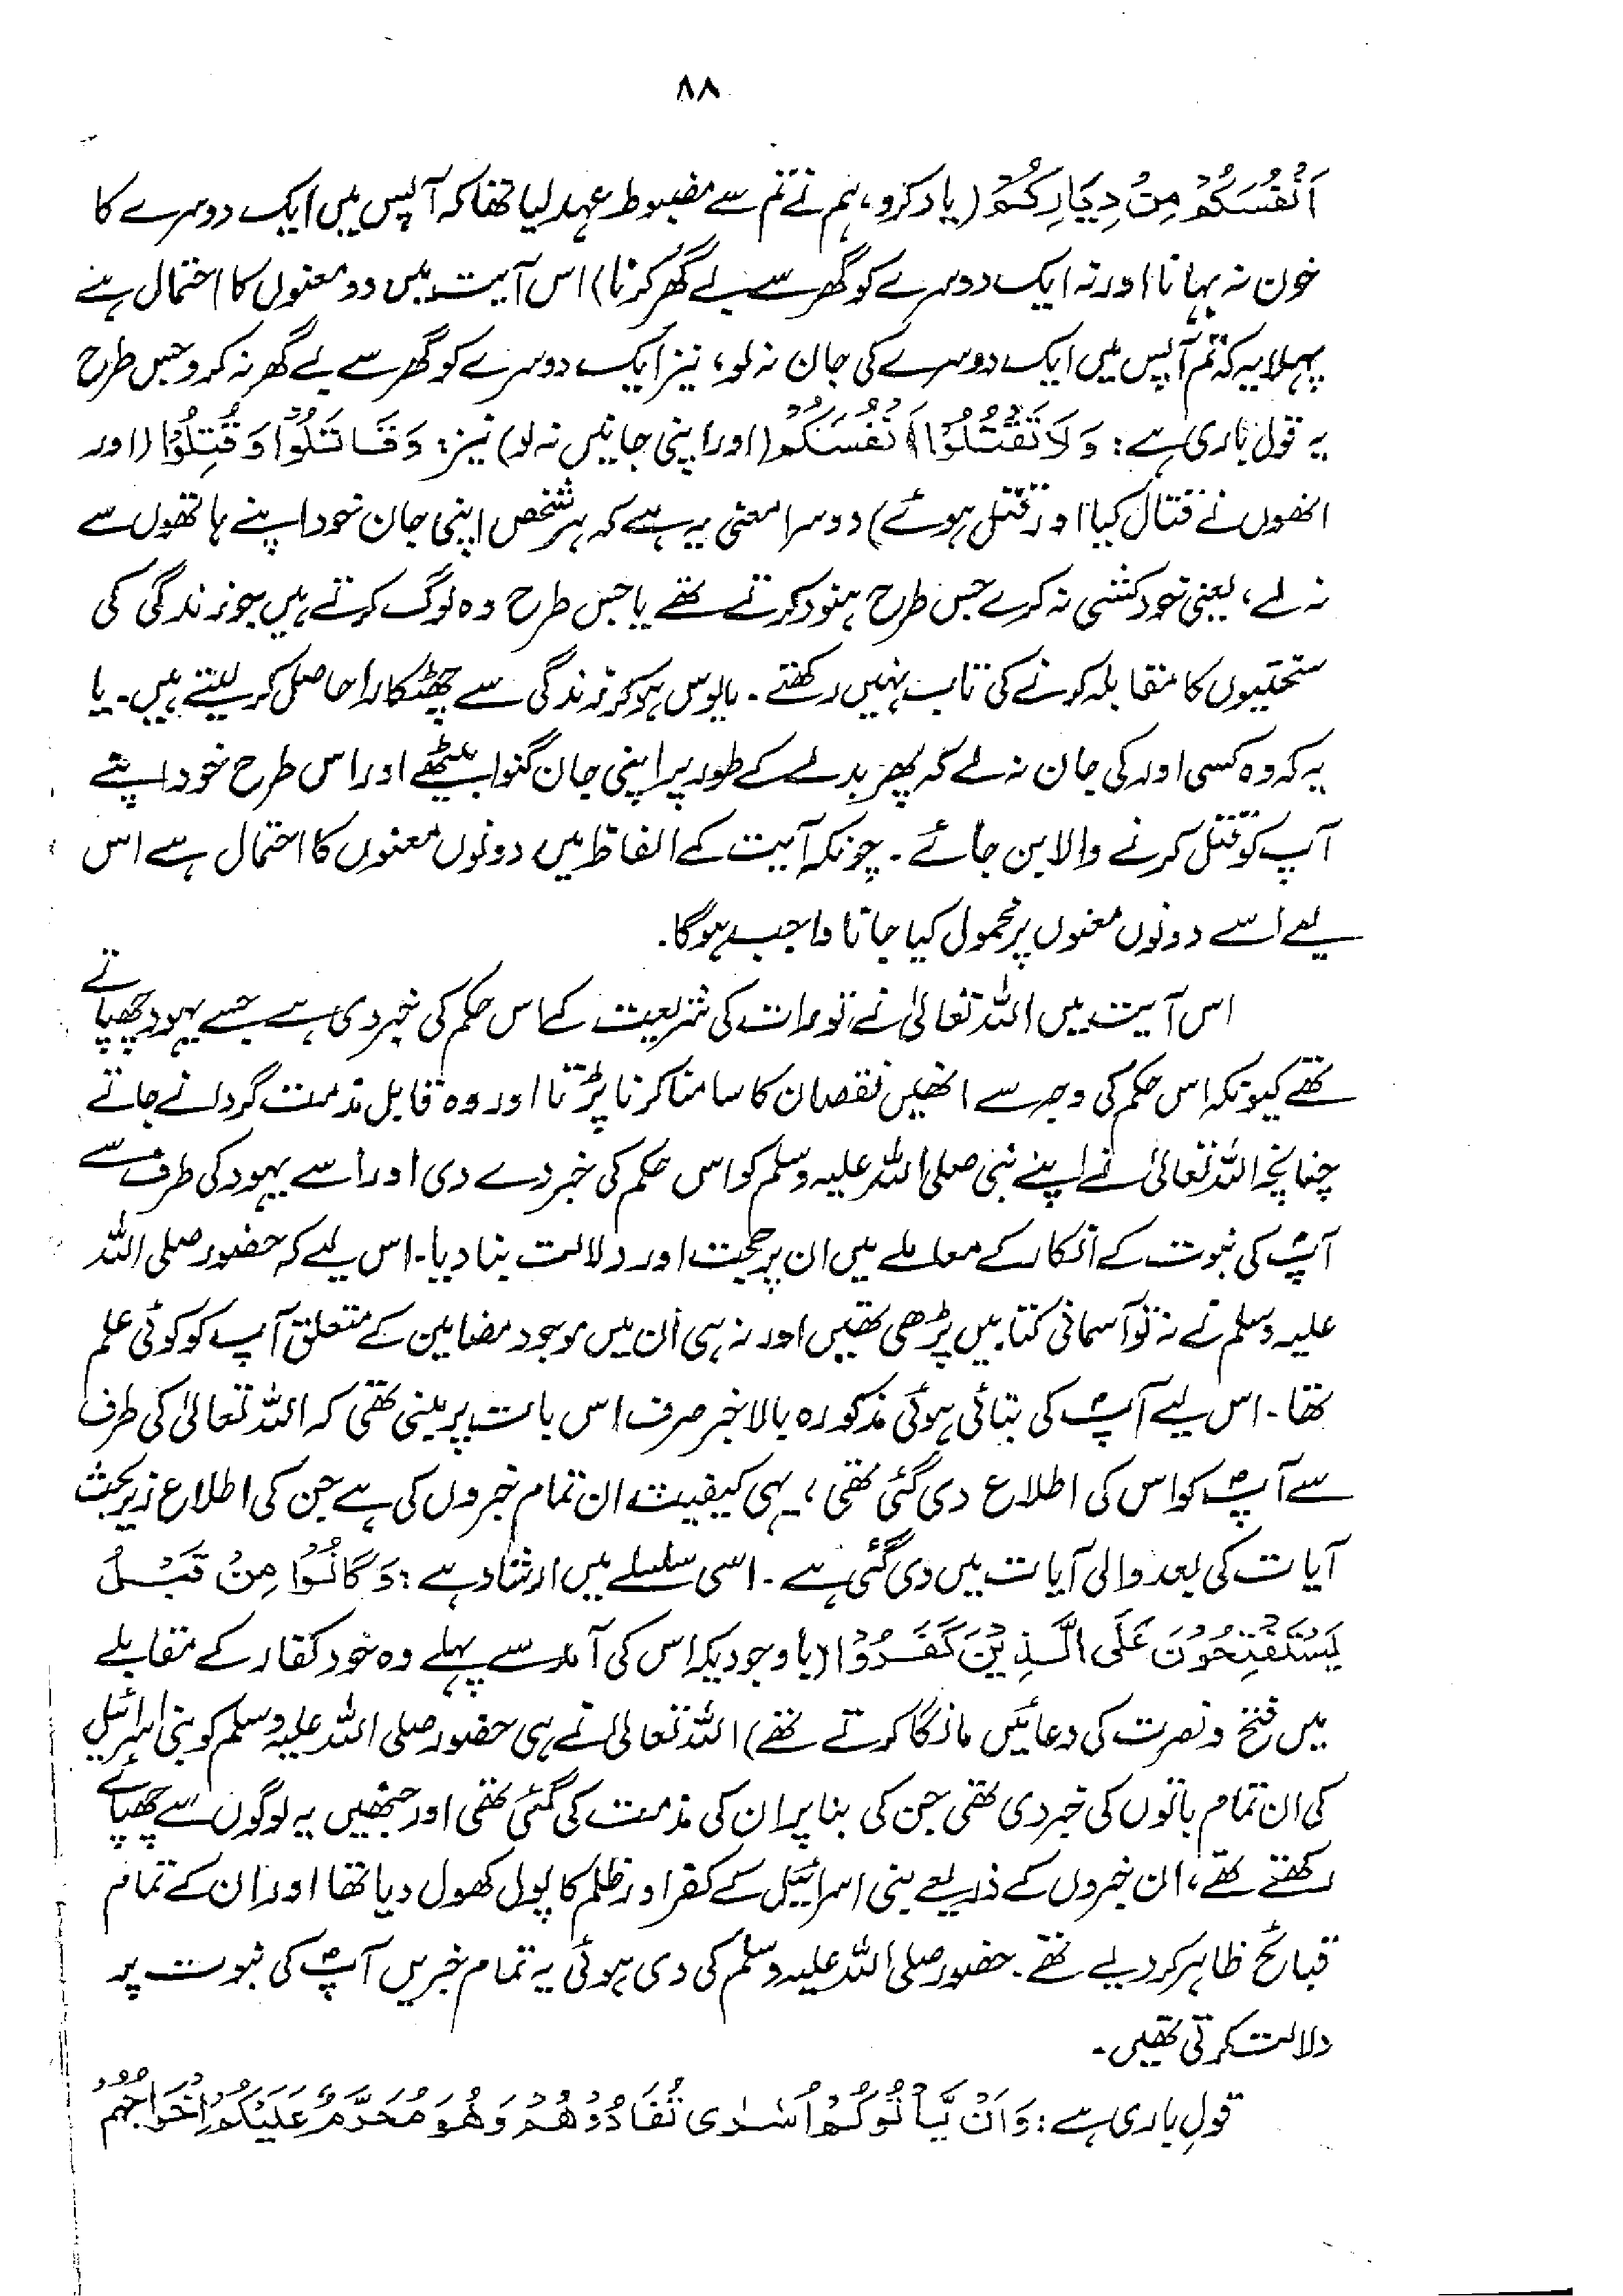 ۸۸
اَنْفُسَكُمْ مِنْ دِيَارِكُمْ (یاد کرو، ہم نے تم سے مضبوط عہد لیا تھا کہ آپس میں ایک دوسرے کا
خون نہ بہانا اور نہ ایک دوسرے کو گھر سے بے گھر کرنا) اس آیت میں دو معنوں کا احتمال ہے
پہلا یہ کہ تم آپس میں ایک دوسرے کی جان نہ لو، نیز ایک دوسرے کو گھر سے بے گھر نہ کرو جس طرح
یہ قول باری ہے: وَلَا تَقْتُلُوْا اَنْفُسَكُمْ (اور اپنی جانیں نہ لو) نیز: وَقَاتَلُوْا وَقُتِلُوْا (اور
انھوں نے قتال کیا اور قتل ہوئے) دوسرا معنی یہ ہے کہ ہر شخص اپنی جان خود اپنے ہاتھوں سے
نہ لے، یعنی خودکشی نہ کرے جس طرح ہنود کرتے تھے یا جس طرح وہ لوگ کرتے ہیں جو زندگی کی
سختیوں کا مقابلہ کرنے کی تاب نہیں رکھتے۔ مایوس ہو کر زندگی سے چھٹکارا حاصل کر لیتے ہیں۔ یا
یہ کہ وہ کسی اور کی جان نہ لے کہ پھر بدلے کے طور پر اپنی جان گنوا بیٹھے اور اس طرح خود اپنے
آپ کو قتل کرنے والا بن جائے۔ چونکہ آیت کے الفاظ میں دونوں معنوں کا احتمال ہے اس
لیے اسے دونوں معنوں پر محمول کیا جانا واجب ہوگا۔
اس آیت میں اللہ تعالیٰ نے تورات کی شریعت کے اس حکم کی خبر دی ہے جسے یہود چھپاتے
تھے کیونکہ اس حکم کی وجہ سے انھیں نقصان کا سامنا کرنا پڑتا اور وہ قابل مذمت گردانے جاتے
چنانچہ اللہ تعالیٰ نے اپنے نبی صلی اللہ علیہ وسلم کو اس حکم کی خبر دے دی اور اسے یہود کی طرف سے
آپؐ کی نبوت کے انکار کے معاملے میں ان پر حجت اور دلالت بنا دیا۔ اس لیے کہ حضور صلی اللہ
علیہ وسلم نے نہ تو آسمانی کتابیں پڑھی تھیں اور نہ ہی ان میں موجود مضامین کے متعلق آپ کو کوئی علم
تھا۔ اس لیے آپؐ کی بتائی ہوئی مذکورہ بالا خبر صرف اس بات پر مبنی تھی کہ اللہ تعالیٰ کی طرف
سے آپؐ کو اس کی اطلاع دی گئی تھی، یہی کیفیت ان تمام خبروں کی ہے جن کی اطلاع زیر بحث
آیات کی بعد والی آیات میں دی گئی ہے۔ اسی سلسلے میں ارشاد ہے: وَكَانُوْا مِنْ قَبْلُ
يَسْتَفْتِحُوْنَ عَلَى الَّذِيْنَ كَفَرُوْا (باوجودیکہ اس کی آمد سے پہلے وہ خود کفار کے مقابلے
میں فتح و نصرت کی دعائیں مانگا کرتے تھے) اللہ تعالیٰ نے ہی حضور صلی اللہ علیہ وسلم کو بنی اسرائیل
کی ان تمام باتوں کی خبر دی تھی جن کی بنا پر ان کی مذمت کی گئی تھی اور جنھیں یہ لوگوں سے چھپائے
رکھتے تھے، ان خبروں کے ذریعے بنی اسرائیل کے کفر اور ظلم کا پول کھول دیا تھا اور ان کے تمام
قبائح ظاہر کر دیے تھے۔ حضور صلی اللہ علیہ وسلم کی دی ہوئی یہ تمام خبریں آپؐ کی نبوت پر
دلالت کرتی تھیں۔
قولِ باری ہے: وَاَنْ يَّأْتُوْكُمْ اُسٰرٰى تُفَادُوْهُمْ وَهُوَ مُحَرَّمٌ عَلَيْكُمْ اِخْرَاجُهُمْ